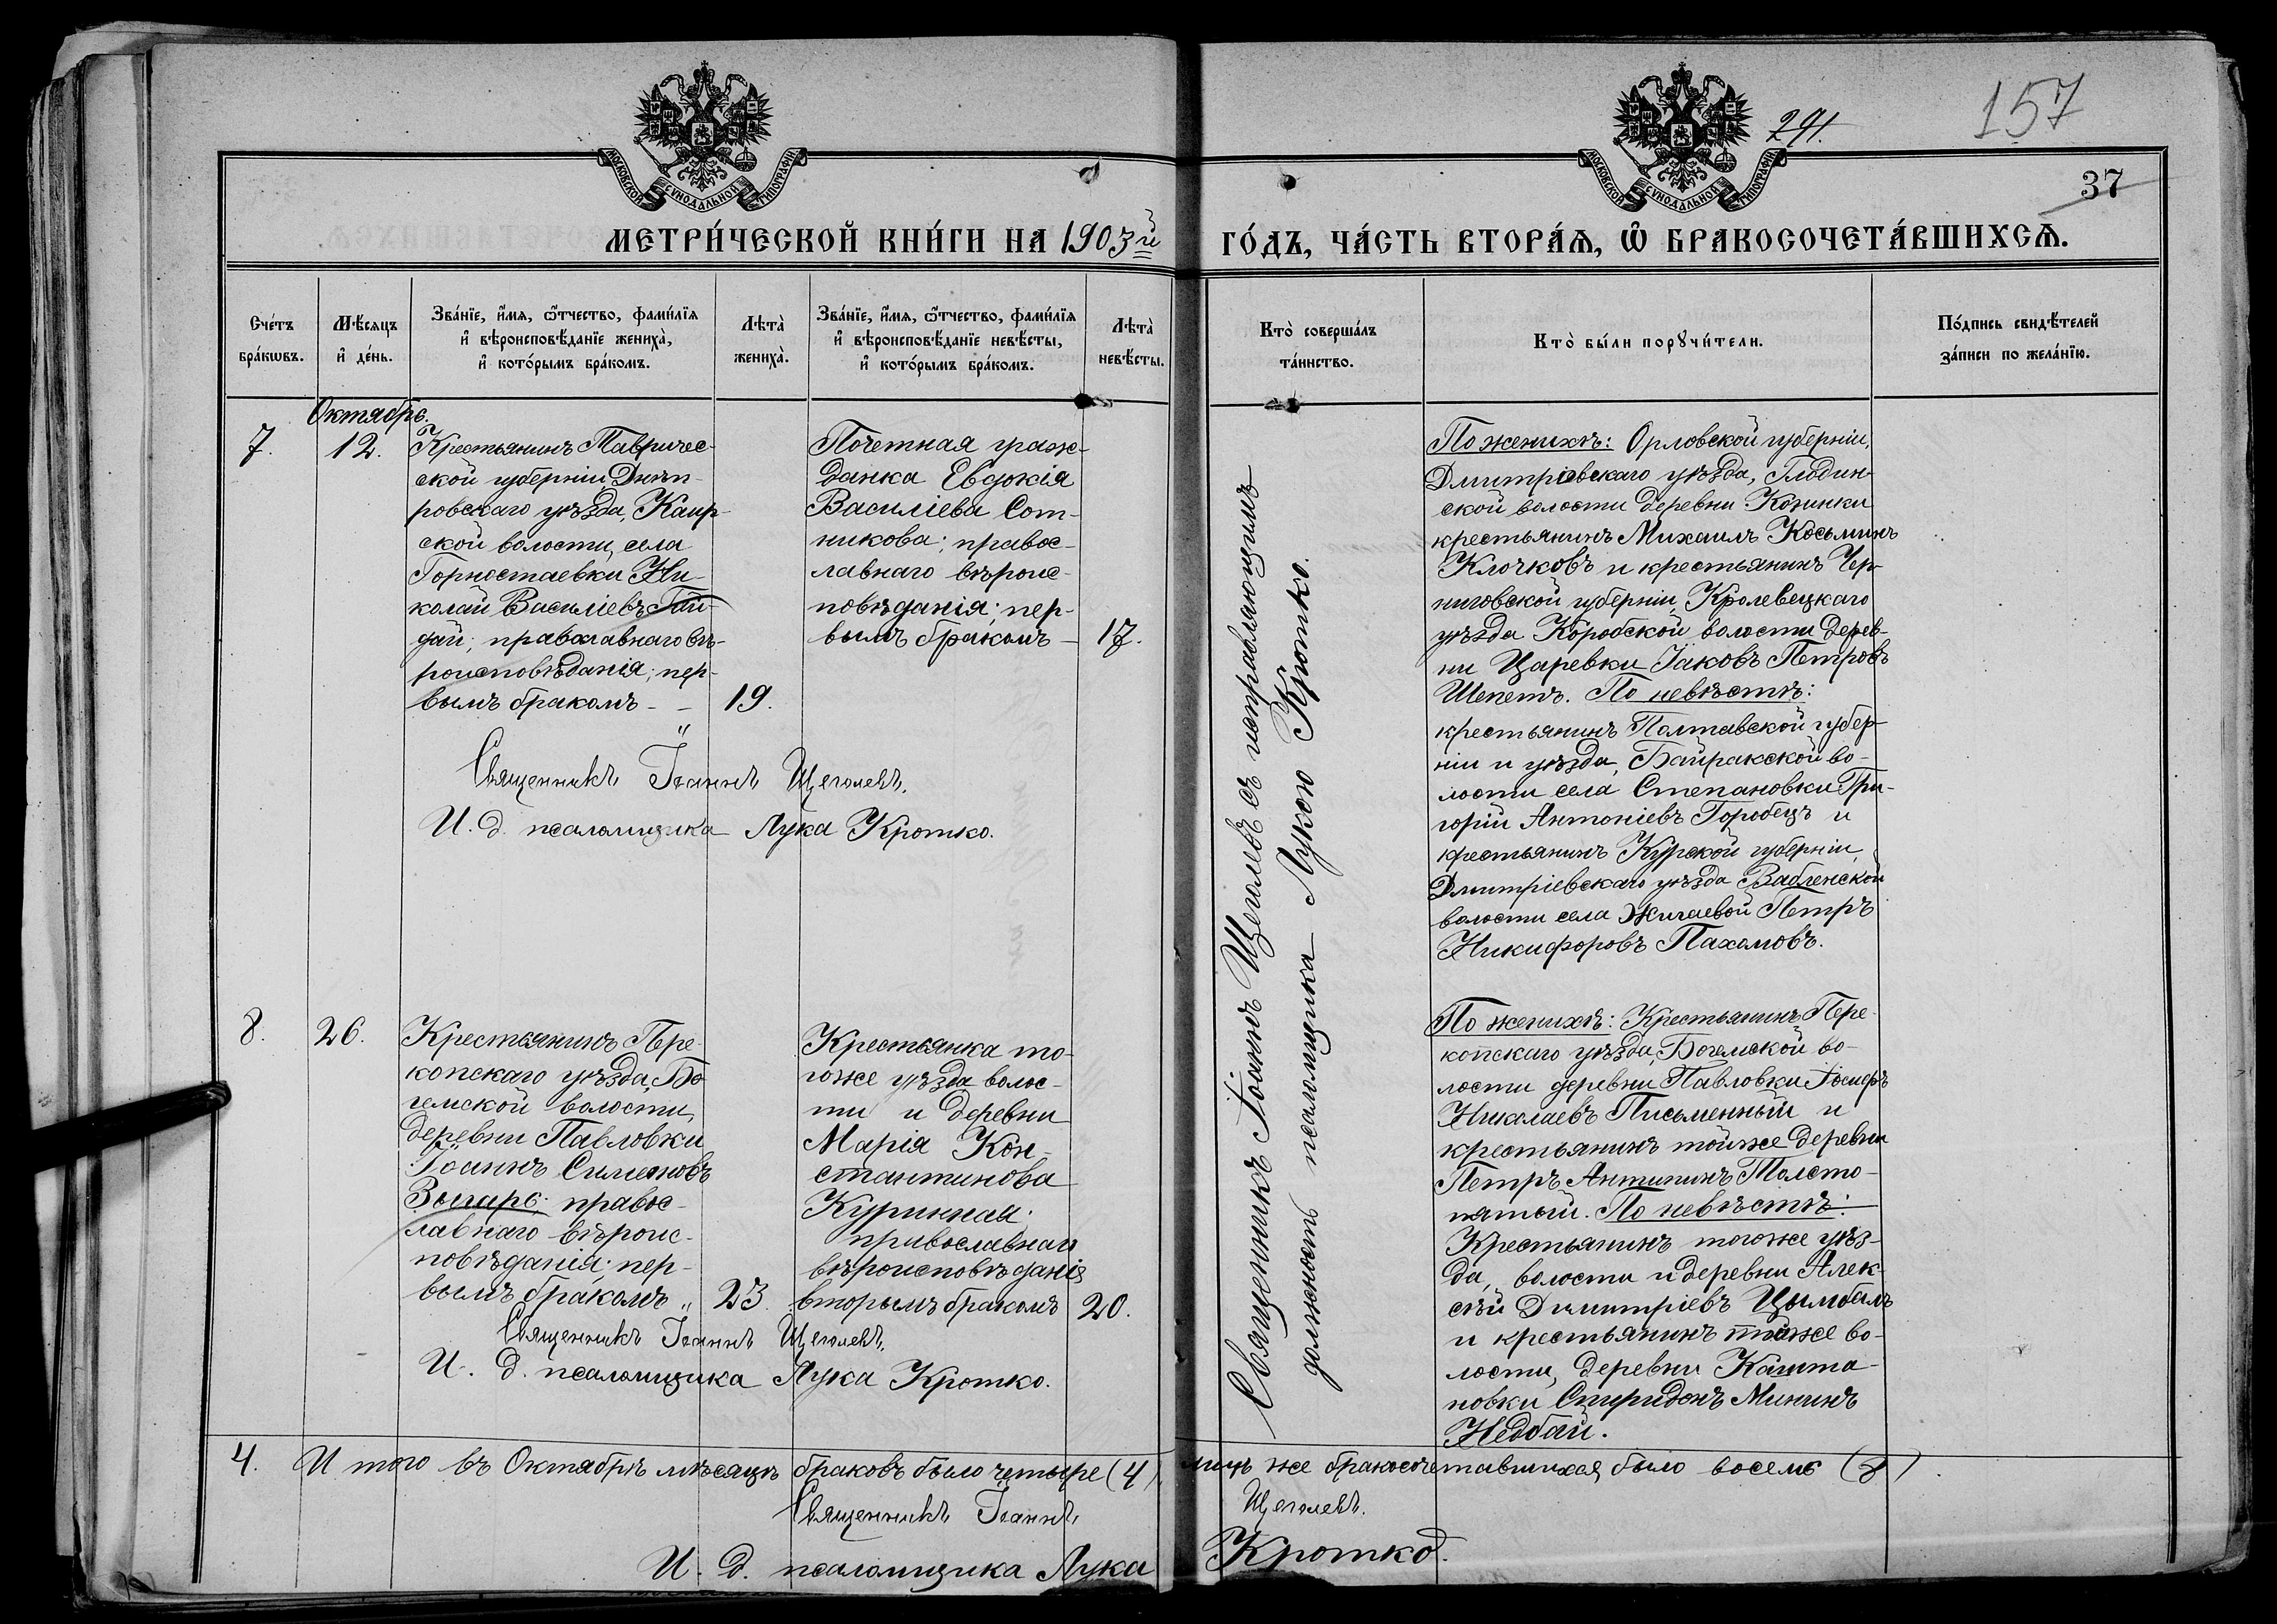 291.
157
37
МОСКОВСКОЙ СѴНОДАЛЬНОЙ ТИПОГРАФІИ
МОСКОВСКОЙ СѴНОДАЛЬНОЙ ТИПОГРАФІИ
МЕТРИ́ЧЕСКОЙ КНИ́ГИ НА 1903й
ГО́ДЪ, ЧА́СТЬ ВТОРА́Ѧ, Ѽ БРАКОСОЧЕТА́ВШИХСѦ.
Сче́тъ
бра́кѡвъ.
Мѣ́сяцъ
и҆ де́нь.
Зва́нїе, и҆́мя, ѻ҆́тчество, фами́лїя
и҆ вѣроисповѣ́данїе жениха̀,
и҆ кото́рымъ бра́комъ.
Лѣта̀
жениха̀.
Зва́нїе, и҆́мя, ѻ҆́тчество, фами́лїя
и҆ вѣроисповѣ́данїе невѣ́сты,
и҆ кото́рымъ бра́комъ.
Лѣта̀
невѣ́сты.
Кто̀ соверша́лъ
та́инство.
Кто̀ бы́ли порꙋчи́тели.
По́дпись свидѣ́телей
за́писи по жела́нїю.
Октябрь.
7.
12.
Крестьянинъ Тавричес-
ской губерніи, Днѣп-
ровскаго уѣзда, Каир-
ской волости, села
Горностаевки Ни-
колай Василіевъ Гай-
дай; православнаго вѣ-
роисповѣданія; пер-
вымъ бракомъ - -
19.
Почетная граж-
данка Евдокія
Василіева Сот-
никова; правос-
лавнаго вѣроис-
повѣданія; пер-
вымъ бракомъ -
17.
Священникъ Іоаннъ Щеголевъ.
И. д. псаломщика Лука Кротко.
Священникъ Іоаннъ Щеголевъ съ исправляющимъ
должность псаломщика Лукою Кротко.
По женихѣ: Орловской губерніи,
Дмитріевскаго уѣзда, Глодин-
ской волости деревни Козинки
крестьянинъ Михаилъ Косьминъ
Клочковъ и крестьянинъ Чер-
ниговской губерніи, Кролевецкаго
уѣзда Коробской волости дерев-
ни Царевки Іаковъ Петровъ
Шепетъ. По невѣстѣ:
крестьянинъ Полтавской губер-
ніи и уѣзда, Байракской во-
лости села Степановки Гри-
горій Антоніевъ Горобецъ и
крестьянинъ Курской губерніи,
Дмитріевскаго уѣзда Вабленской
волости села Жигаевой Петръ
Никифоровъ Пахомовъ.
8.
26.
Крестьянинъ Пере-
копскаго уѣзда, Бо-
гемской волости,
деревни Павловки
Іоаннъ Симеоновъ
правос-
лавнаго вѣроис-
повѣданія; пер-
вымъ бракомъ „
23.
Крестьянка то-
гоже уѣзда волос-
ти и деревни
Марія Кон-
стантинова
Куринная;
православнаго
вѣроисповѣданія
вторымъ бракомъ
20.
Священникъ Іоаннъ Щеголевъ.
И. д. псаломщика Лука Кротко.
По женихѣ: Крестьянинъ Пере-
копскаго уѣзда, Богемской во-
лости деревни Павловки Іосифъ
Николаевъ Письменный и
крестьянинъ тойже деревни
Петръ Антипинъ Толсто-
пятый. По невѣстѣ:
Крестьянинъ тогоже уѣз-
да, волости и деревни Алек-
сѣй Димитріевъ Цымбалъ
и крестьянинъ тойже во-
лости, деревни Кашта-
новки Спиридонъ Мининъ
Недбай.
4. И того въ Октябрѣ мѣсяцѣ браковъ было четыре (4), лицъ же бракосочетавшихся было восемь (8).
Священникъ Іоаннъ Щеголевъ.
И. д. псаломщика Лука Кротко.